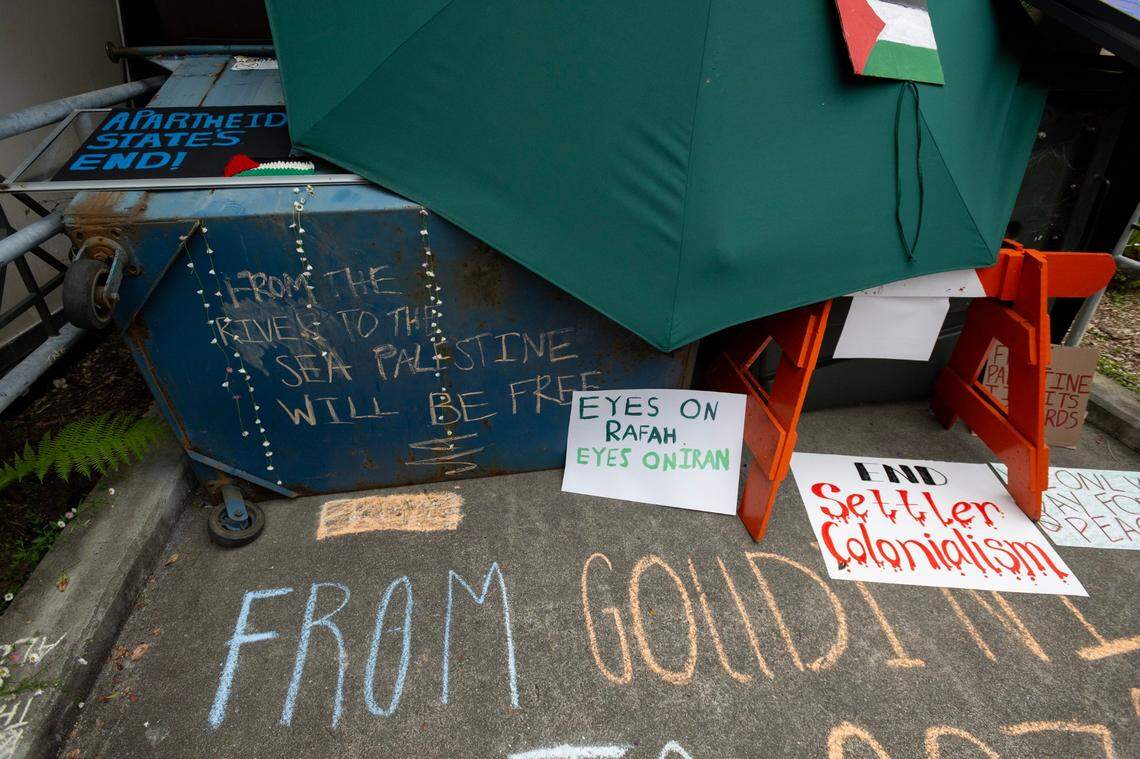 APARTHEID
STATE'S
END!
FROM THE
RIVER TO THE
SEA PALESTINE
WILL BE FREE
EYES ON
RAFAH
EYES ON IRAN
END
Settler
Colonialism
ONLY
PAY FOR
PEACE
FROM GOLDINI
TO